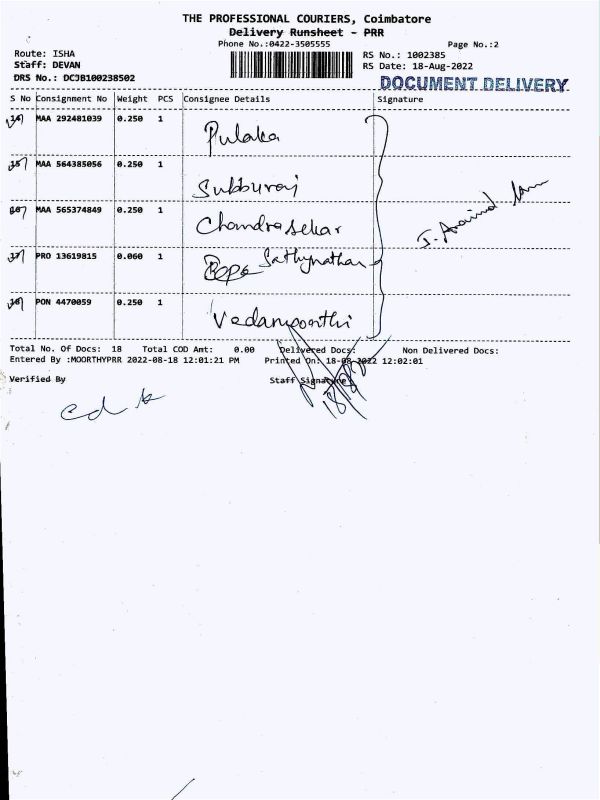 THE PROFESSIONAL COURIERS, Coimbatore
Delivery Runsheet - PRR
Phone No.:0422-3505555 Page No.:2
Route: ISHA RS No.: 1002385
Staff: DEVAN RS Date: 18-Aug-2022
DRS No.: DCJB100238502 DOCUMENT DELIVERY
S No Consignment No Weight PCS Consignee Details Signature
14 MAA 292481039 0.250 1 Pulaka
15 MAA 564385056 0.250 1 Subburaj
16 MAA 565374849 0.250 1 Chandrasekar
17 PRO 13619815 0.060 1 Sathynathan
18 PON 4470059 0.250 1 Vedamoorthi
Total No. Of Docs: 18 Total COD Amt: 0.00 Delivered Docs: Non Delivered Docs:
Entered By :MOORTHYPRR 2022-08-18 12:01:21 PM Printed On: 18-08-2022 12:02:01
Verified By Staff Signature